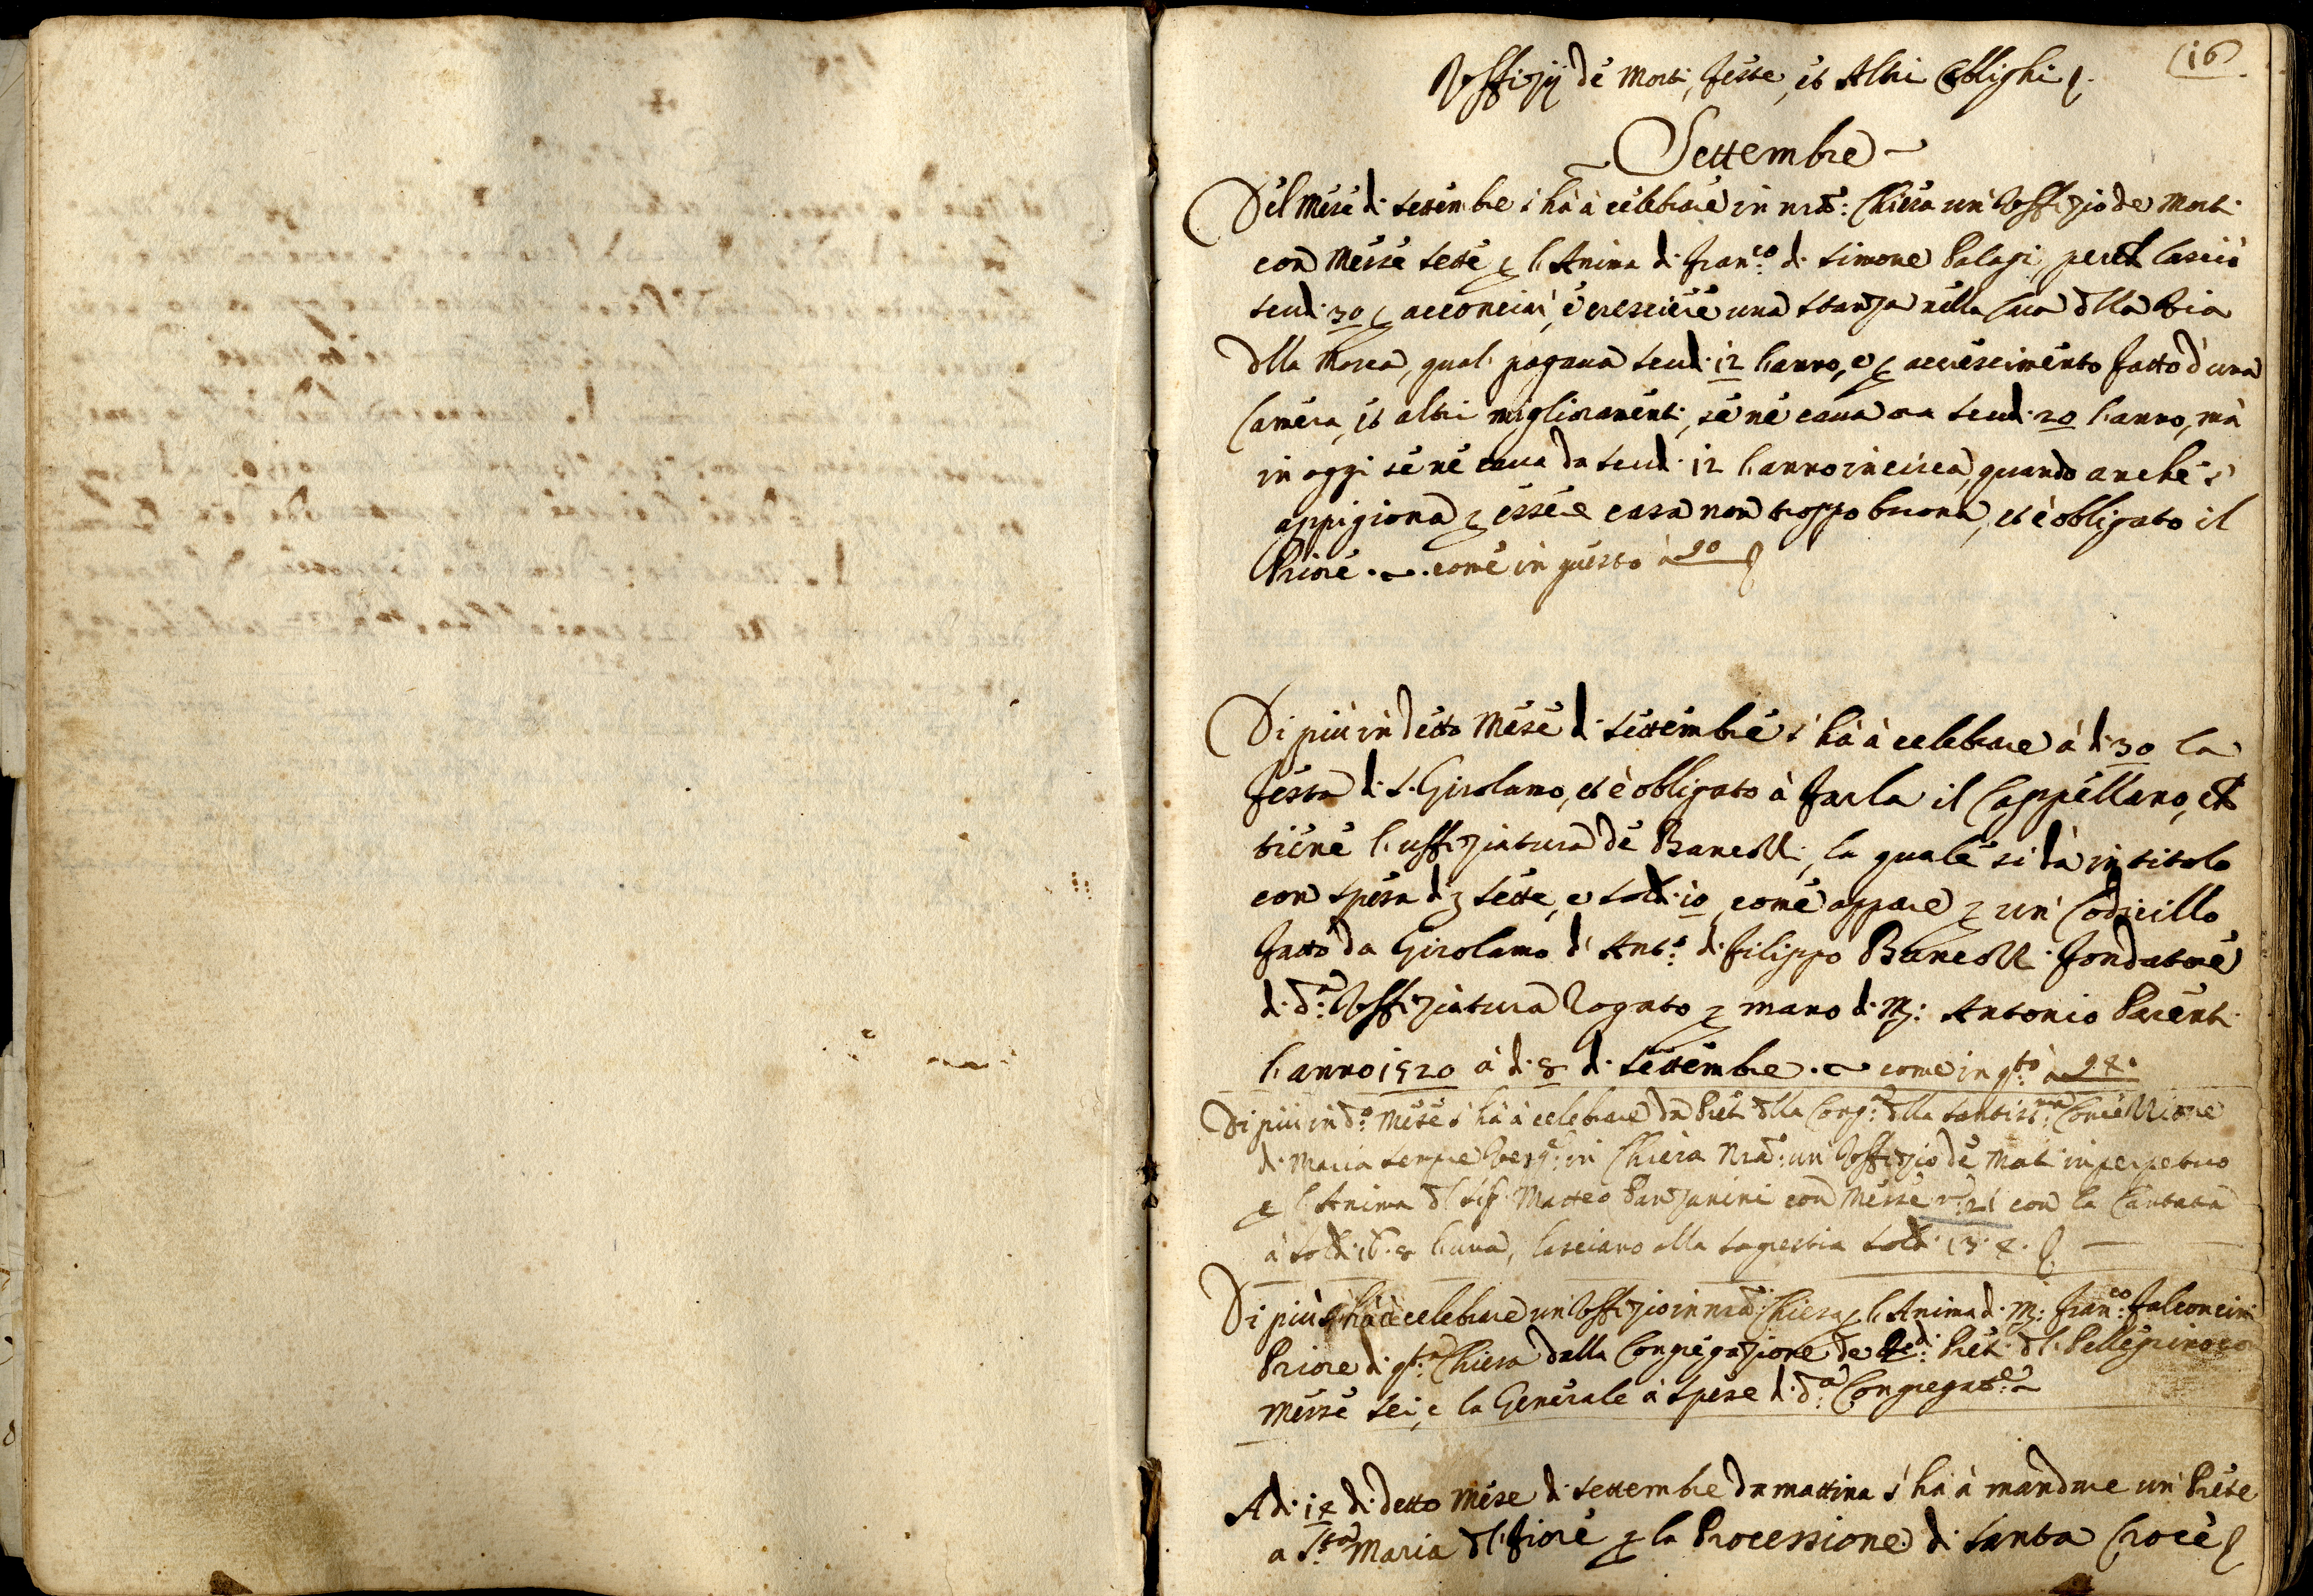 (16)
Uffizij de Morti, Feste, et Altri Oblighi
Settembre
Del Mese di Settembre s'ha à celebrare in nrã: Chiesa un'Uffizio de Morti
con Messe Sette p l'Anima di Fran:co di Simone Palagi, lasciò
scudi 30 p acconciar', e crescere una stanza nella Casa dlla Via
dlla Morea, qual pagava scudi 12 l'anno, e p accrescimento fatto d'una
Camera, et altri miglioramenti, se ne cava ora scudi 20 l'anno, mà
in oggi se ne cava da scudi 12 l'anno in circa, quando anche s'
appigiona p essere casa non troppo buona, et è obligato il
Priore come in questo à 90
Di più in detto Mese di Settembre s'ha à celebrare à di 30 la
Festa di S. Girolamo, et è obligato à farla il Cappellano, che
tiene l'uffiziatura de Banchelli, la quale si dà in titolo
con spesa di Sette, e soldi 10 come appare p un'Codicillo
fatto da Girolamo d'Ant:o di Filippo fondatore
di d:a Uffiziatura Rogato p mano di M: Antonio Parenti
l'anno 1520 à di 8 di Settembre come in q:to à 94.
Di più in d:o Mese s'ha à celebrare da Preti dlla Cong:e dlla Santiss:ma Concezzione
di Maria Sempre Verg:e in Chiesa Nrã: un'Uffizio de Morti in perpetuo
p l'Anima dl Sig: Matteo Panzanini con Messe n:o 21 con la Cantata
à soldi 16.8 l'una, lasciano alla Sagrestia soldi 13.4.
Di più s'ha à celebrare un'Uffizio in nrã: Chiesa p l'Anima di M: Fran:co Falconcini
Priore di q:ta Chiesa dalla Congregazione de Red: Preti dl Pellegrino co
Messe Sei, e la Generale à spese di d:a Congregat:e
A di 14 di detto Mese di Settembre da mattina s'ha à mandare un'Prete
a S:ta Maria dl Fiore p la Processione di Santa Croce